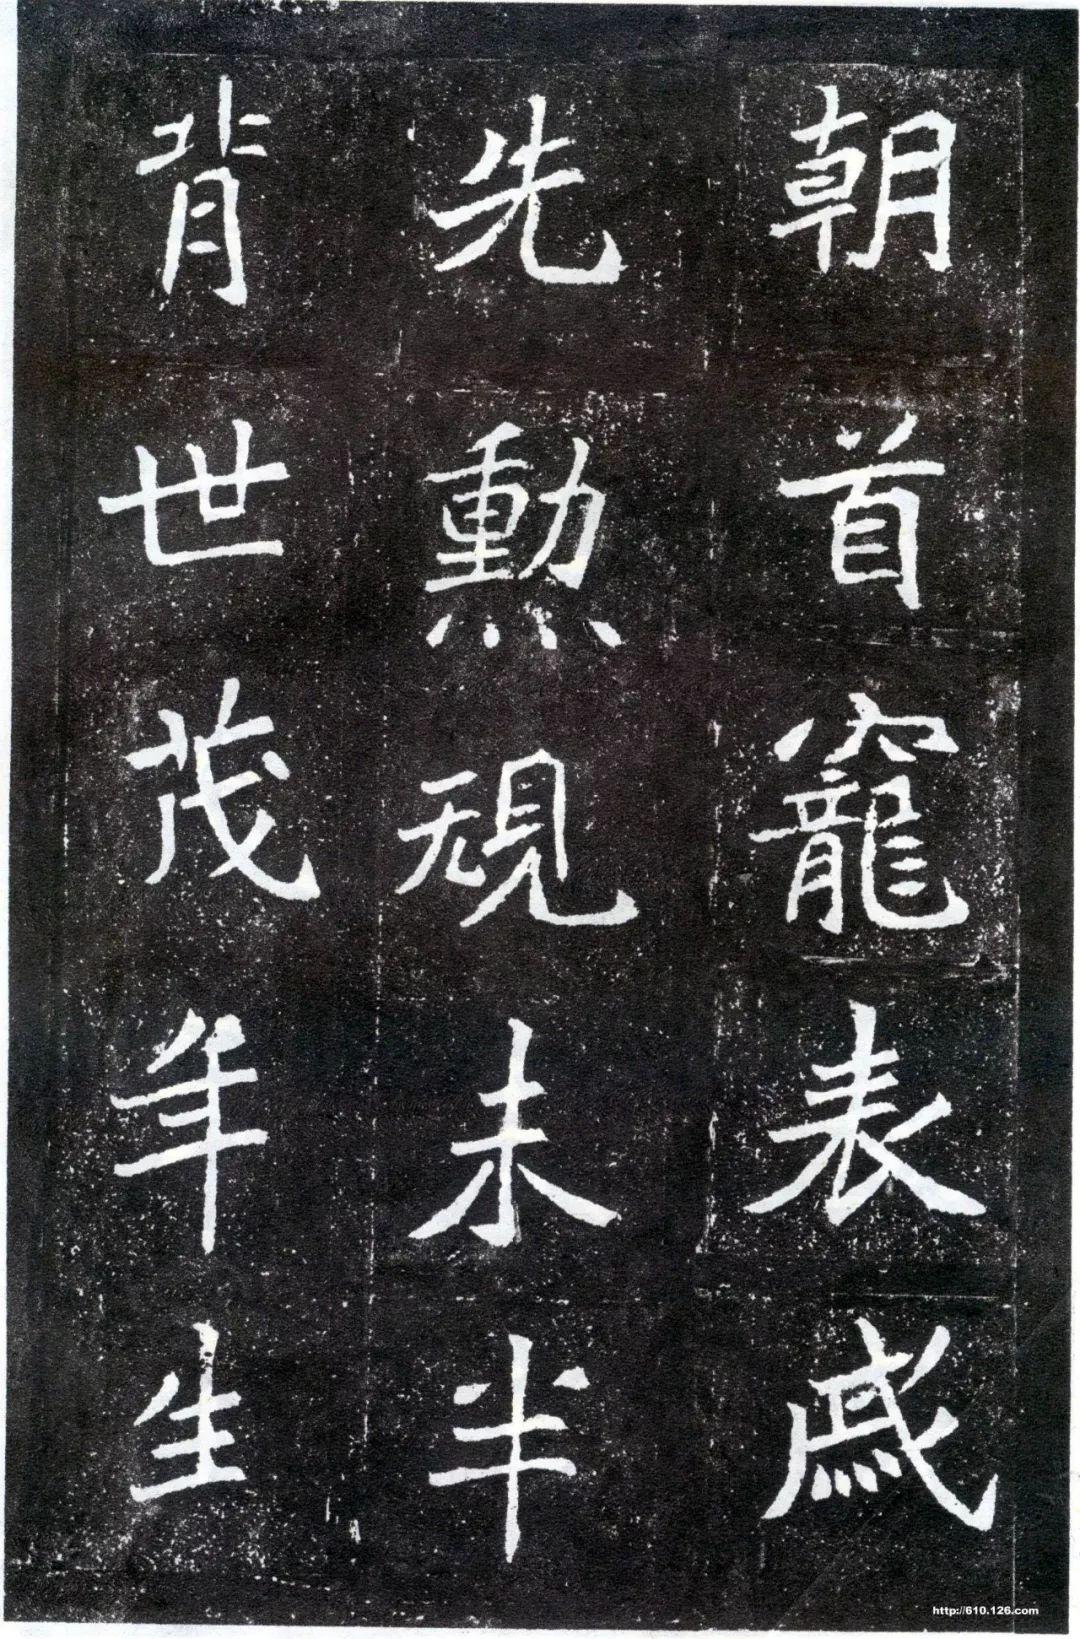 朝首寵表戚
先勲規未半
背世茂年生
http://610.126.com